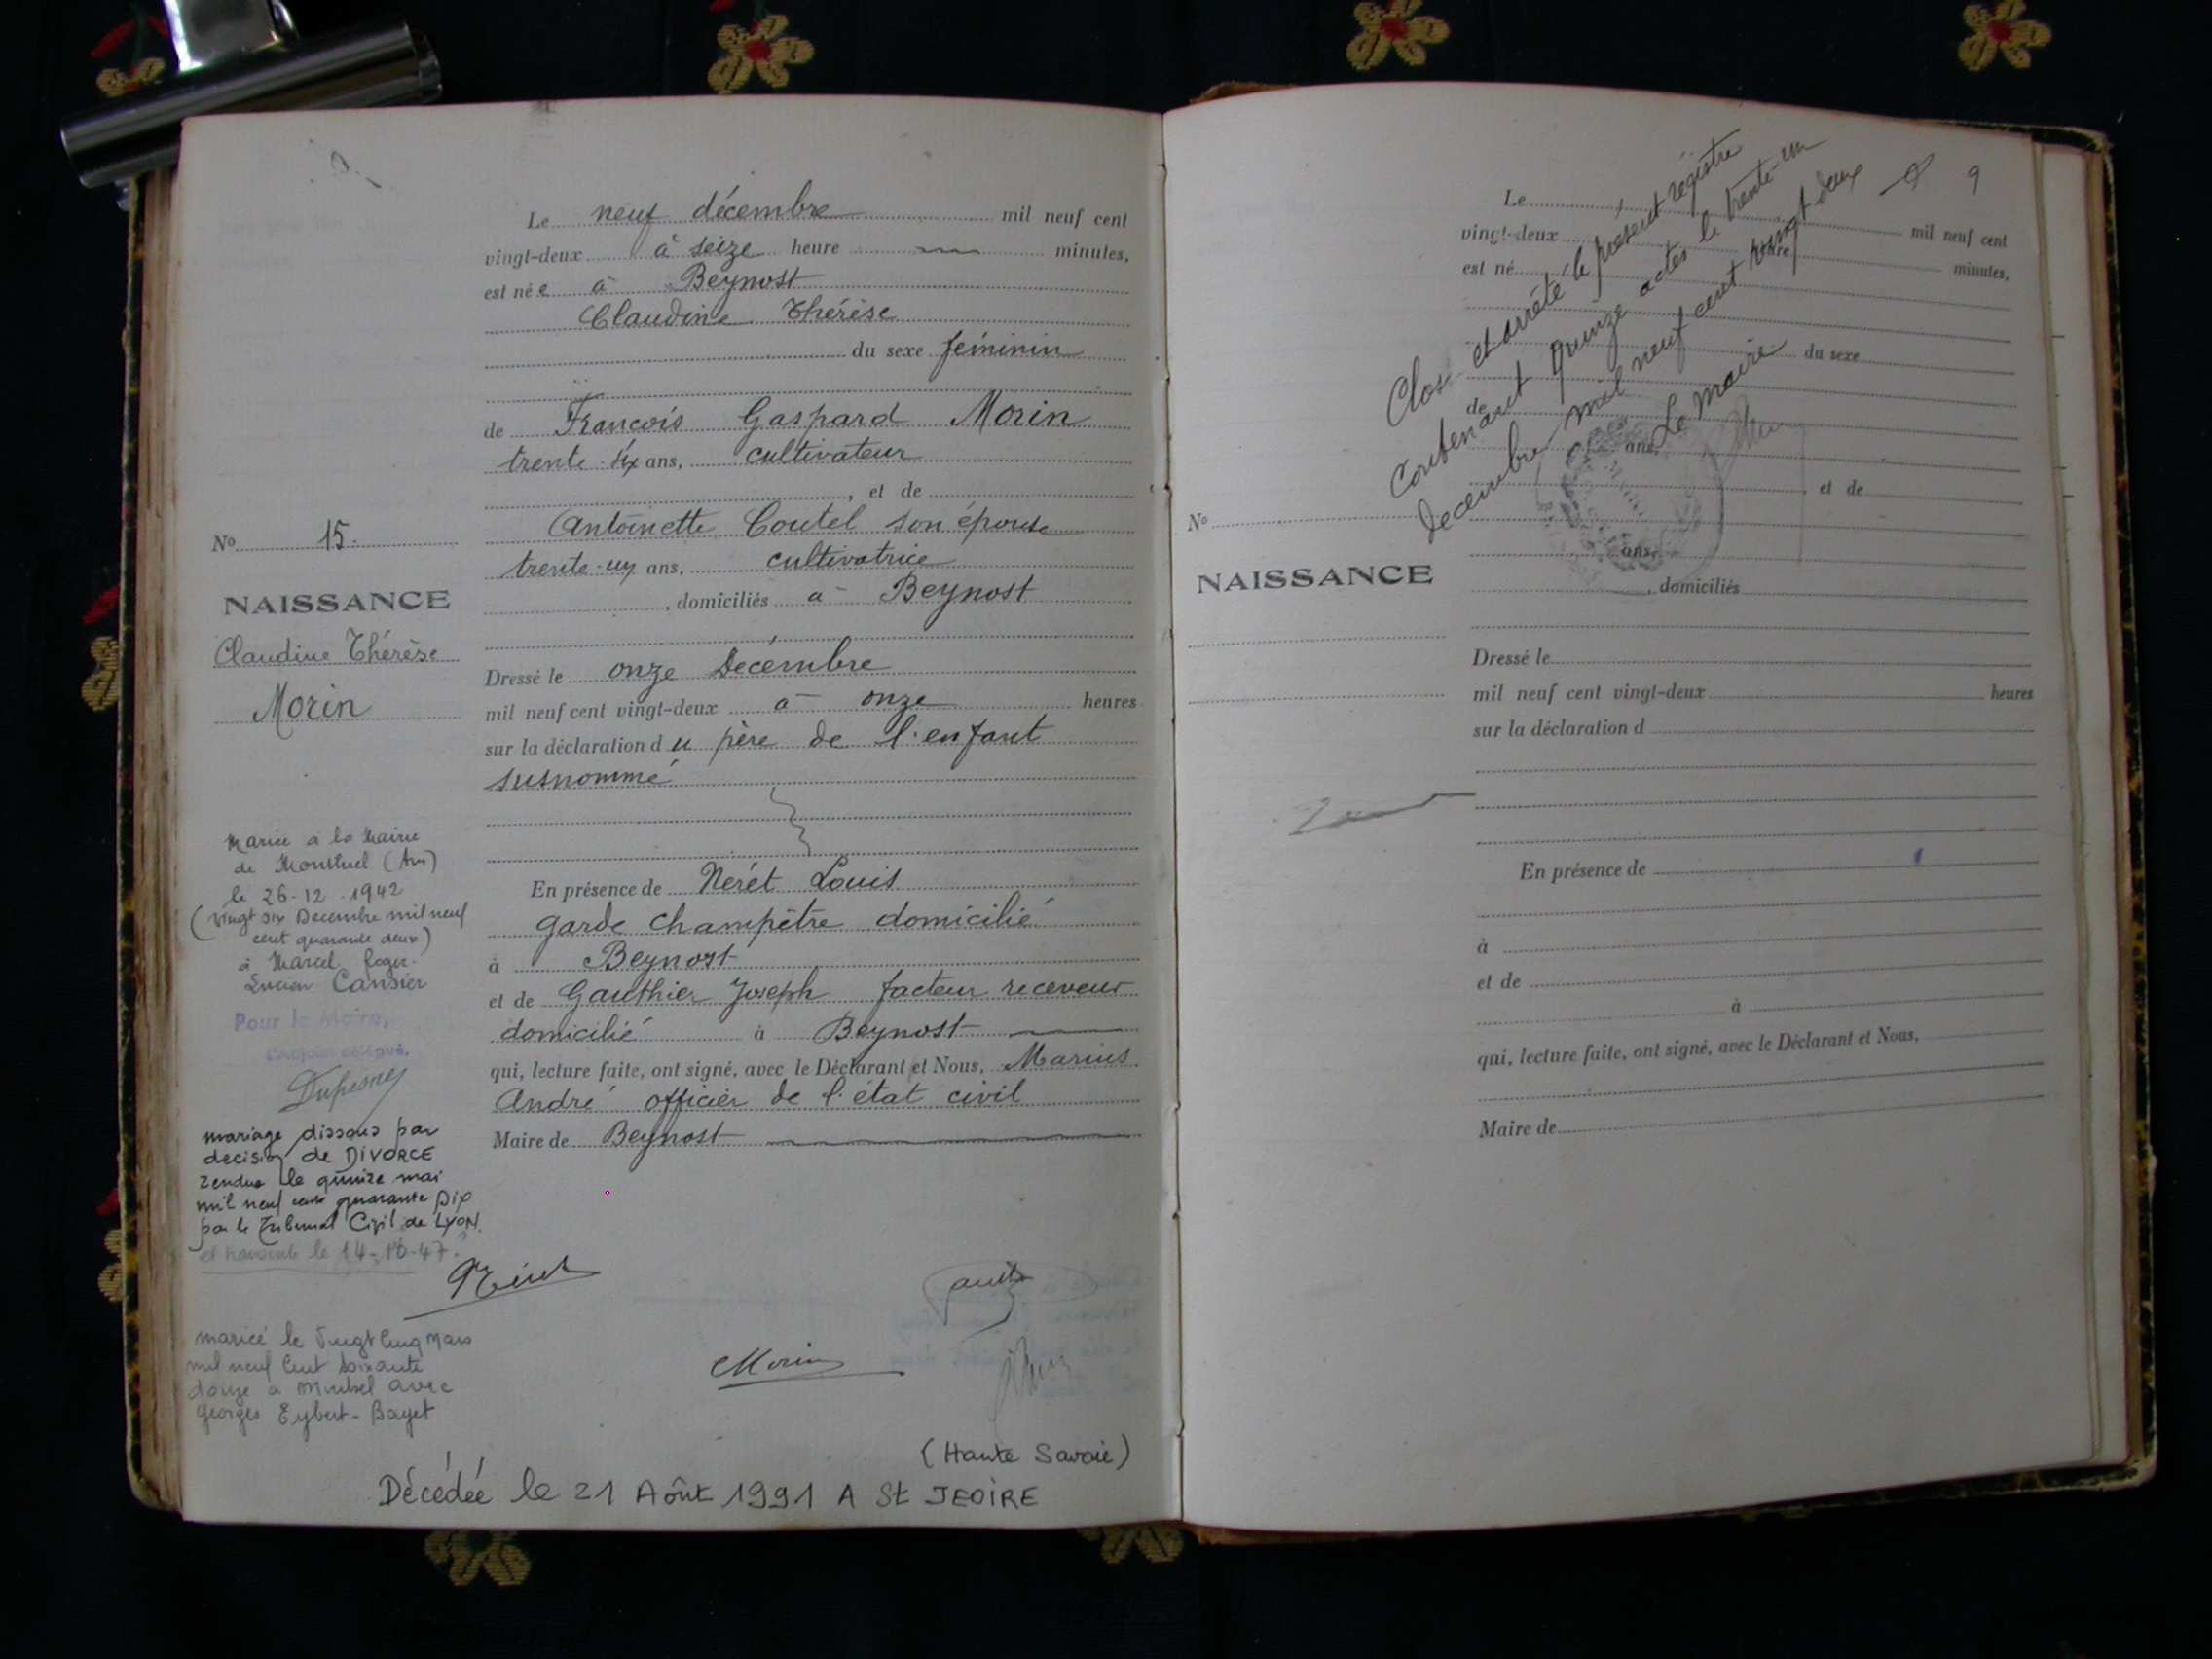 Le neuf décembre mil neuf cent
vingt-deux à seize heure minutes,
est née à Beynost
Claudine Thérèse
du sexe féminin
de François Gaspard Morin
trente-six ans, cultivateur
, et de
Antoinette Coutel son épouse
trente-un ans, cultivatrice
, domiciliés à Beynost
Dressé le onze Décembre
mil neuf cent vingt-deux à onze heures
sur la déclaration du père de l'enfant
susnommé
En présence de Nerét Louis
garde champêtre domicilié
à Beynost
et de Gauthier Joseph facteur receveur
domicilié à Beynost
qui, lecture faite, ont signé, avec le Déclarant et Nous, Marius
André officier de l'état civil
Maire de Beynost
No 15.
NAISSANCE
Claudine Thérèse
Morin
Mariée a la Mairie
de Montluel (Ain)
le 26-12-1942
(vingt six Decembre mil neuf
cent quarante deux)
à Marcel Roger
Lucien Cansier
Pour le Maire,
L'Adjoint délégué,
mariage dissous par
decision de DIVORCE
rendue le quinze mai
mil neuf cent quarante six
par le Tribunal Civil de LYON.
le 14-10-47
Morin
mariée le vingt cinq Mars
mil neuf cent soixante
douze a Miribel avec
Georges Eybert-Baget
(Haute Savoie)
Décédée le 21 Août 1991 A St JEOIRE
9
Clos et arrêté le présent régistre
contenant quinze actes le trente-un
decembre mil neuf cent vingt deux
Le maire
Le mil neuf cent
vingt-deux heure minutes,
est né
du sexe
de
ans,
, et de
ans,
, domiciliés
No
NAISSANCE
Dressé le
mil neuf cent vingt-deux heures
sur la déclaration d
En présence de
à
et de
à
qui, lecture faite, ont signé, avec le Déclarant et Nous,
Maire de